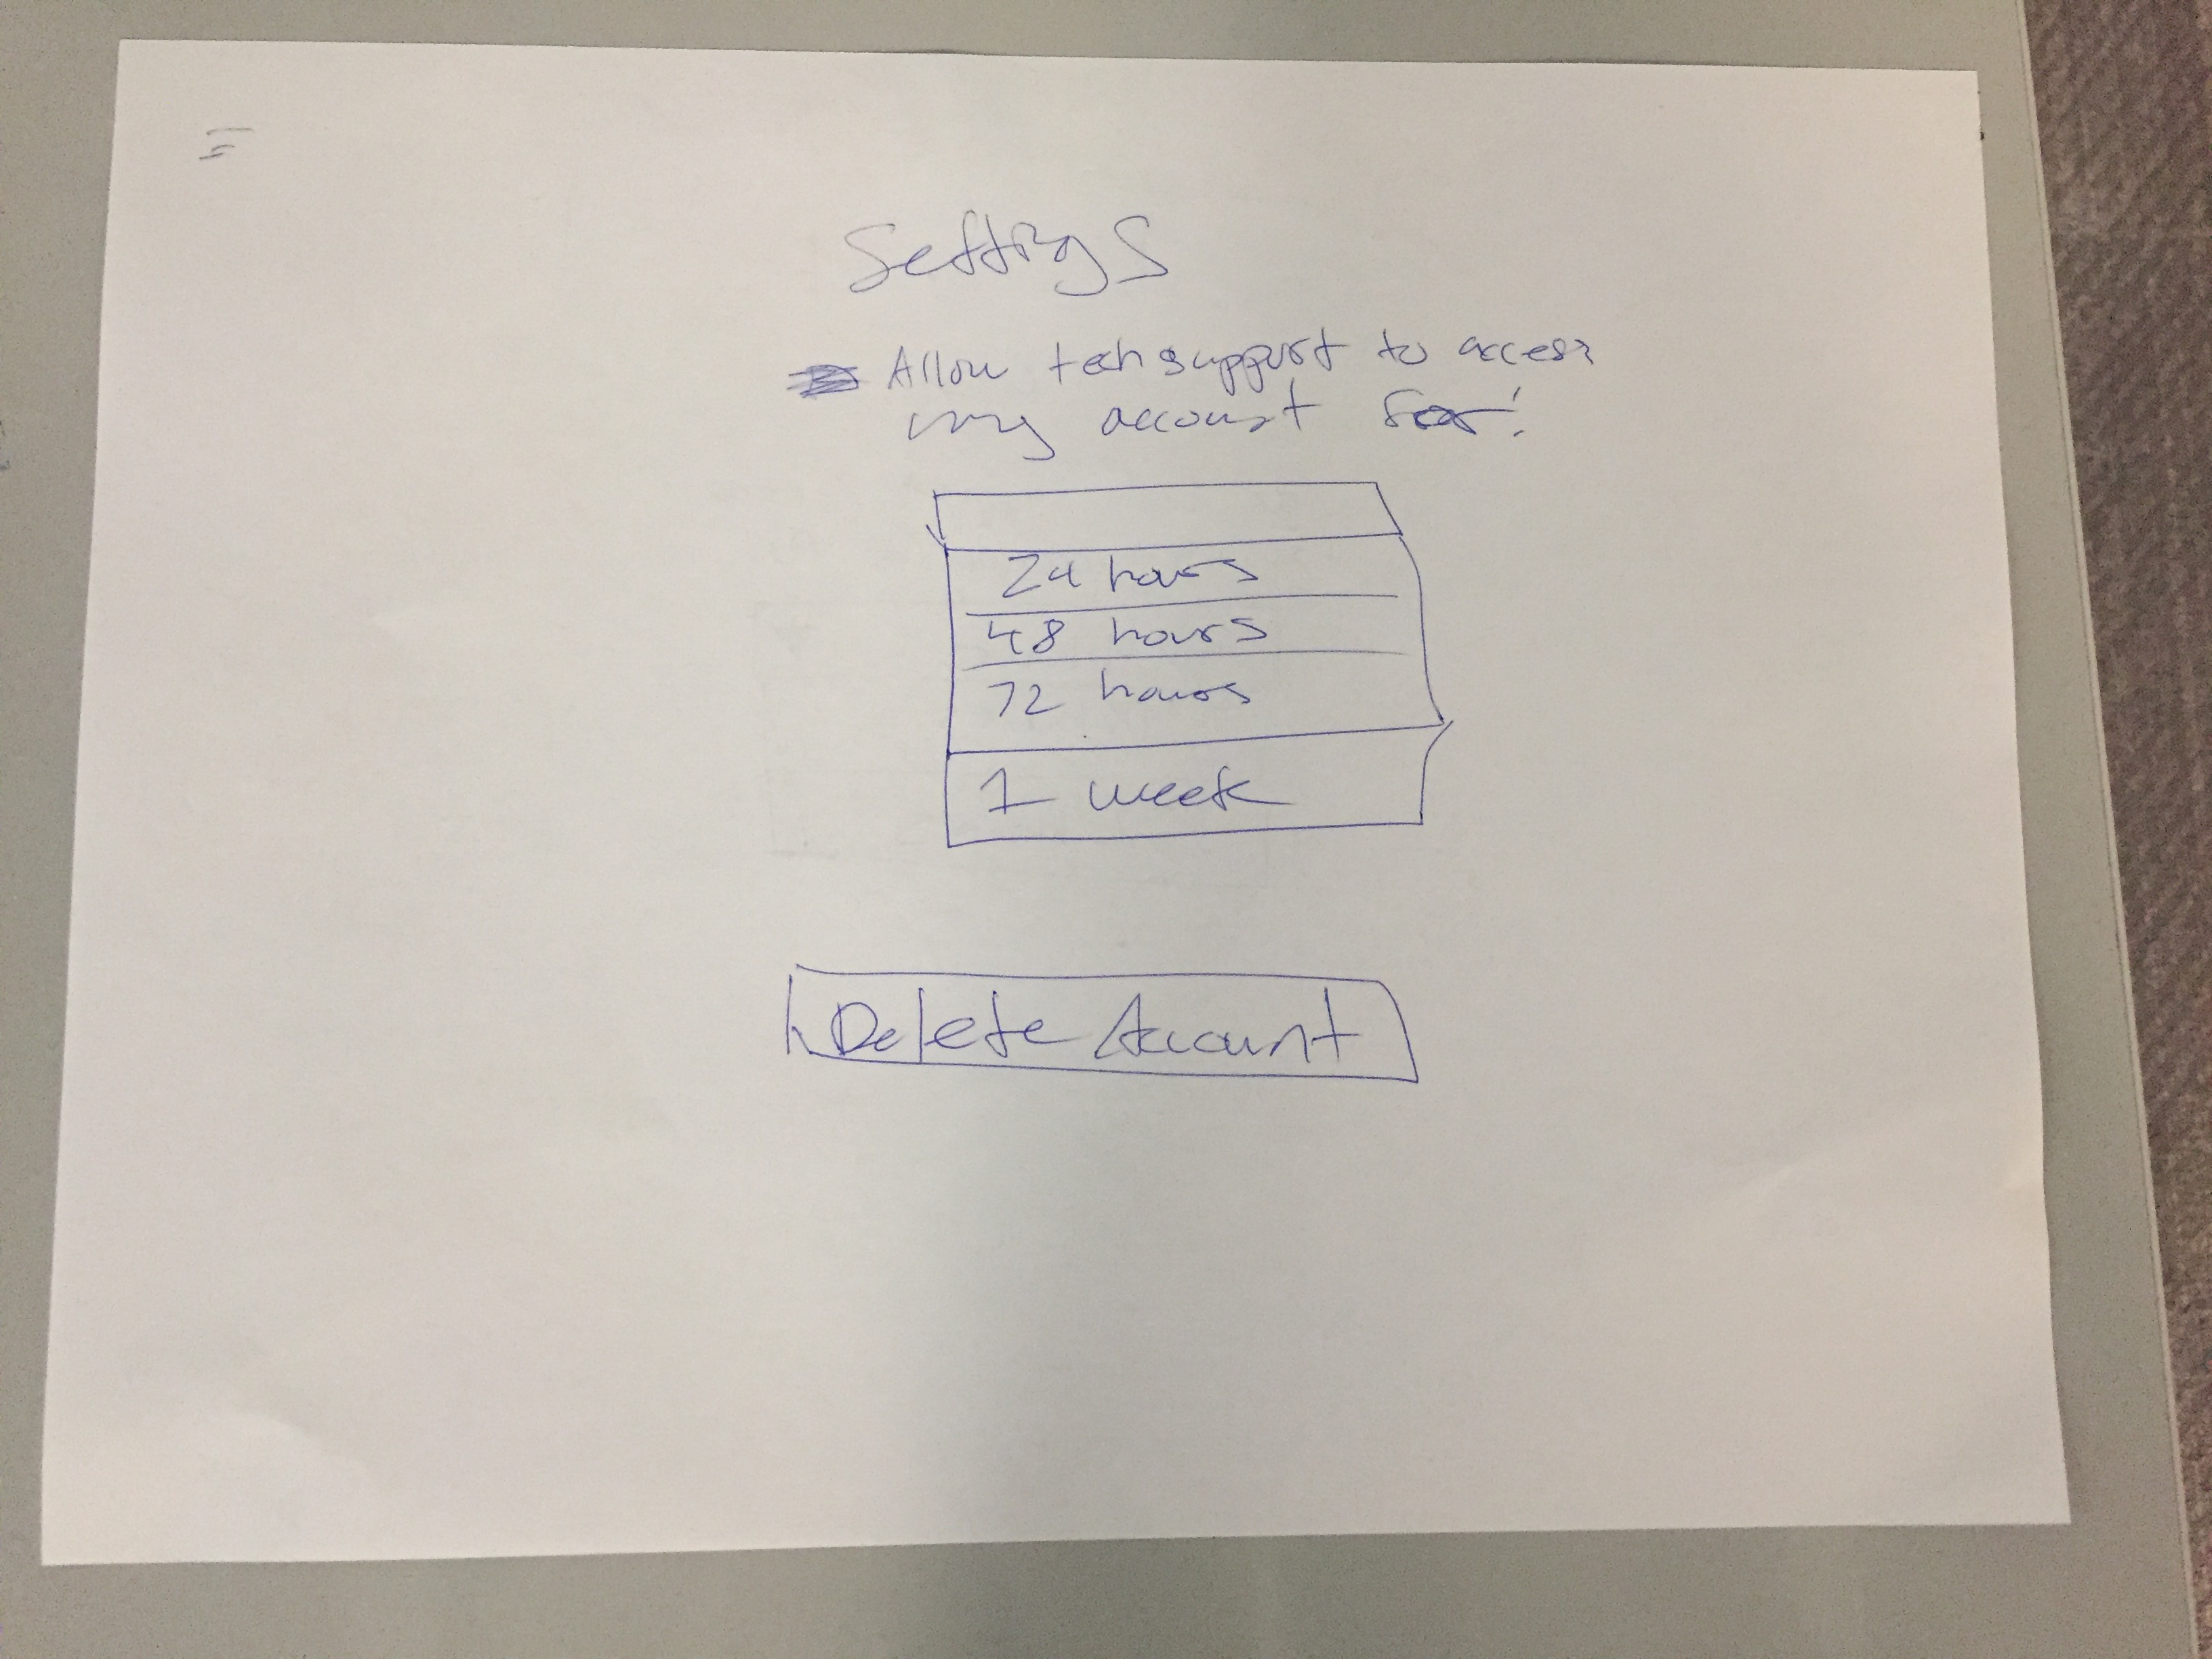 Settings
Allow tech support to access
my account for:
24 hours
48 hours
72 hours
1 week
Delete Account